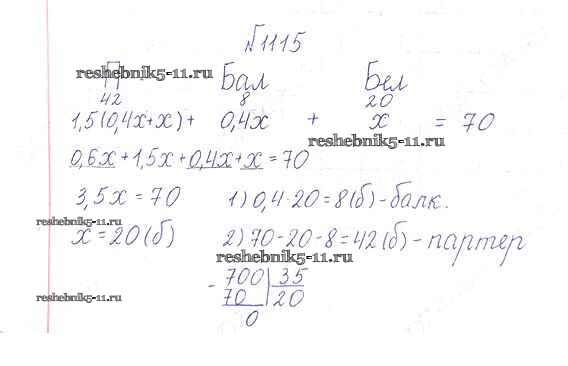 №1115
reshebnik5-11.ru
П Бал Бел
42 8 20
1,5(0,4x+x) + 0,4x + x = 70
reshebnik5-11.ru
0,6x + 1,5x + 0,4x + x = 70
3,5x = 70 1) 0,4·20 = 8(б) - балк.
reshebnik5-11.ru
x = 20(б) 2) 70-20-8 = 42(б) - партер
reshebnik5-11.ru
- 700 35
70 20
reshebnik5-11.ru
0